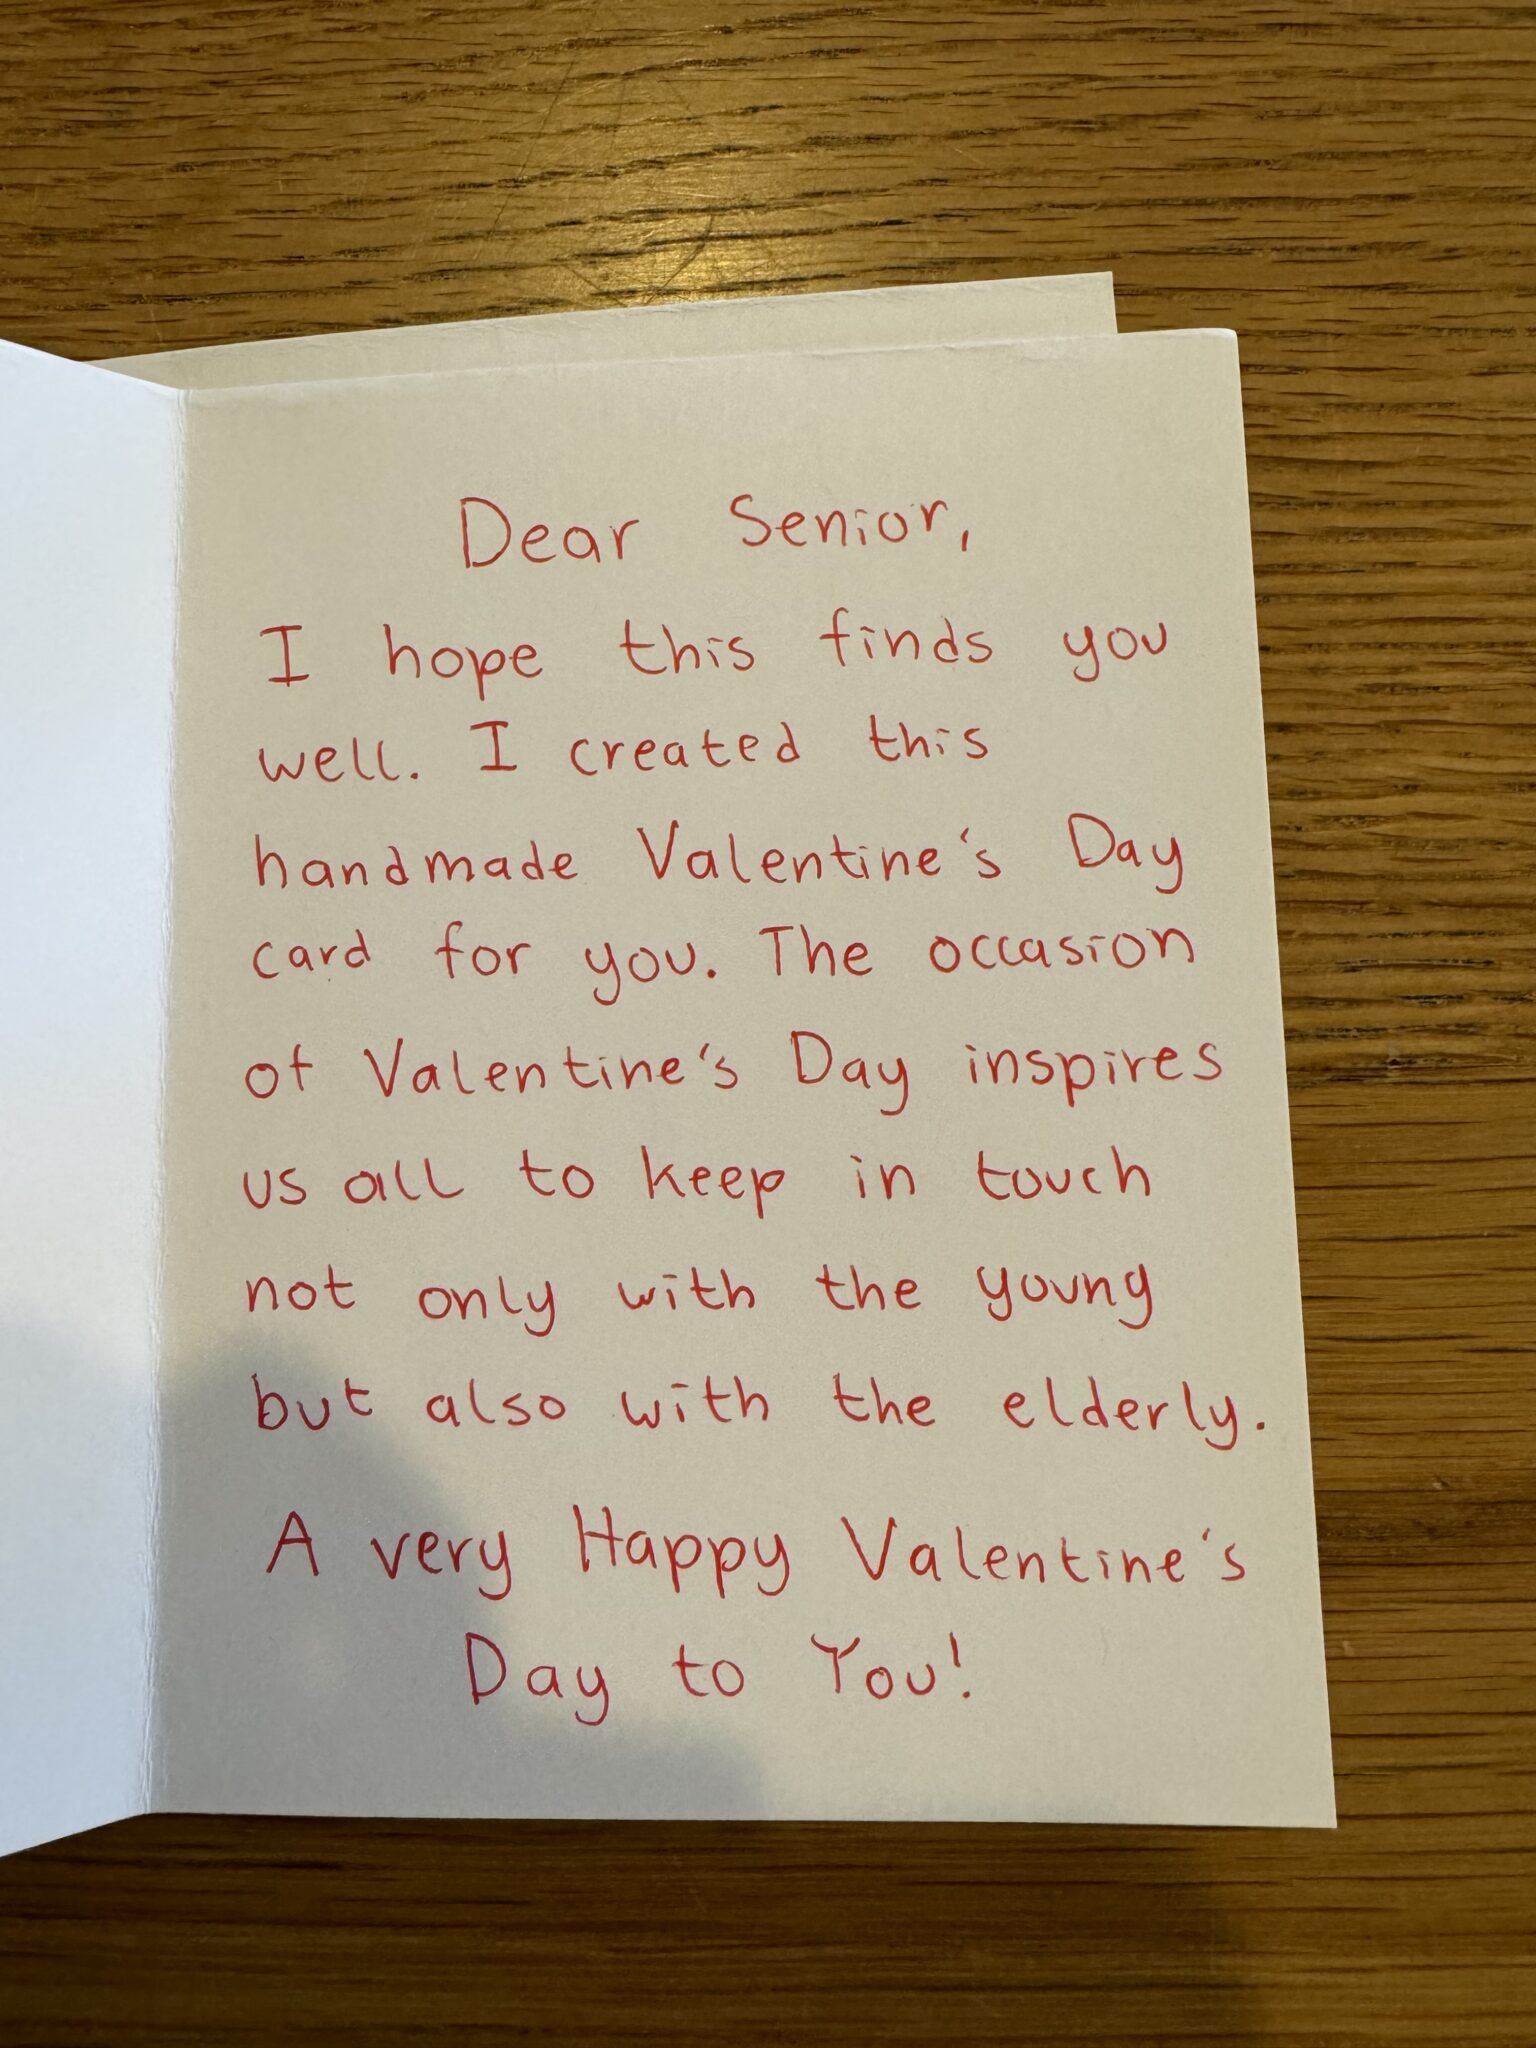 Dear Senior,
I hope this finds you
well. I created this
handmade Valentine's Day
card for you. The occasion
of Valentine's Day inspires
us all to keep in touch
not only with the young
but also with the elderly.
A very Happy Valentine's
Day to You!